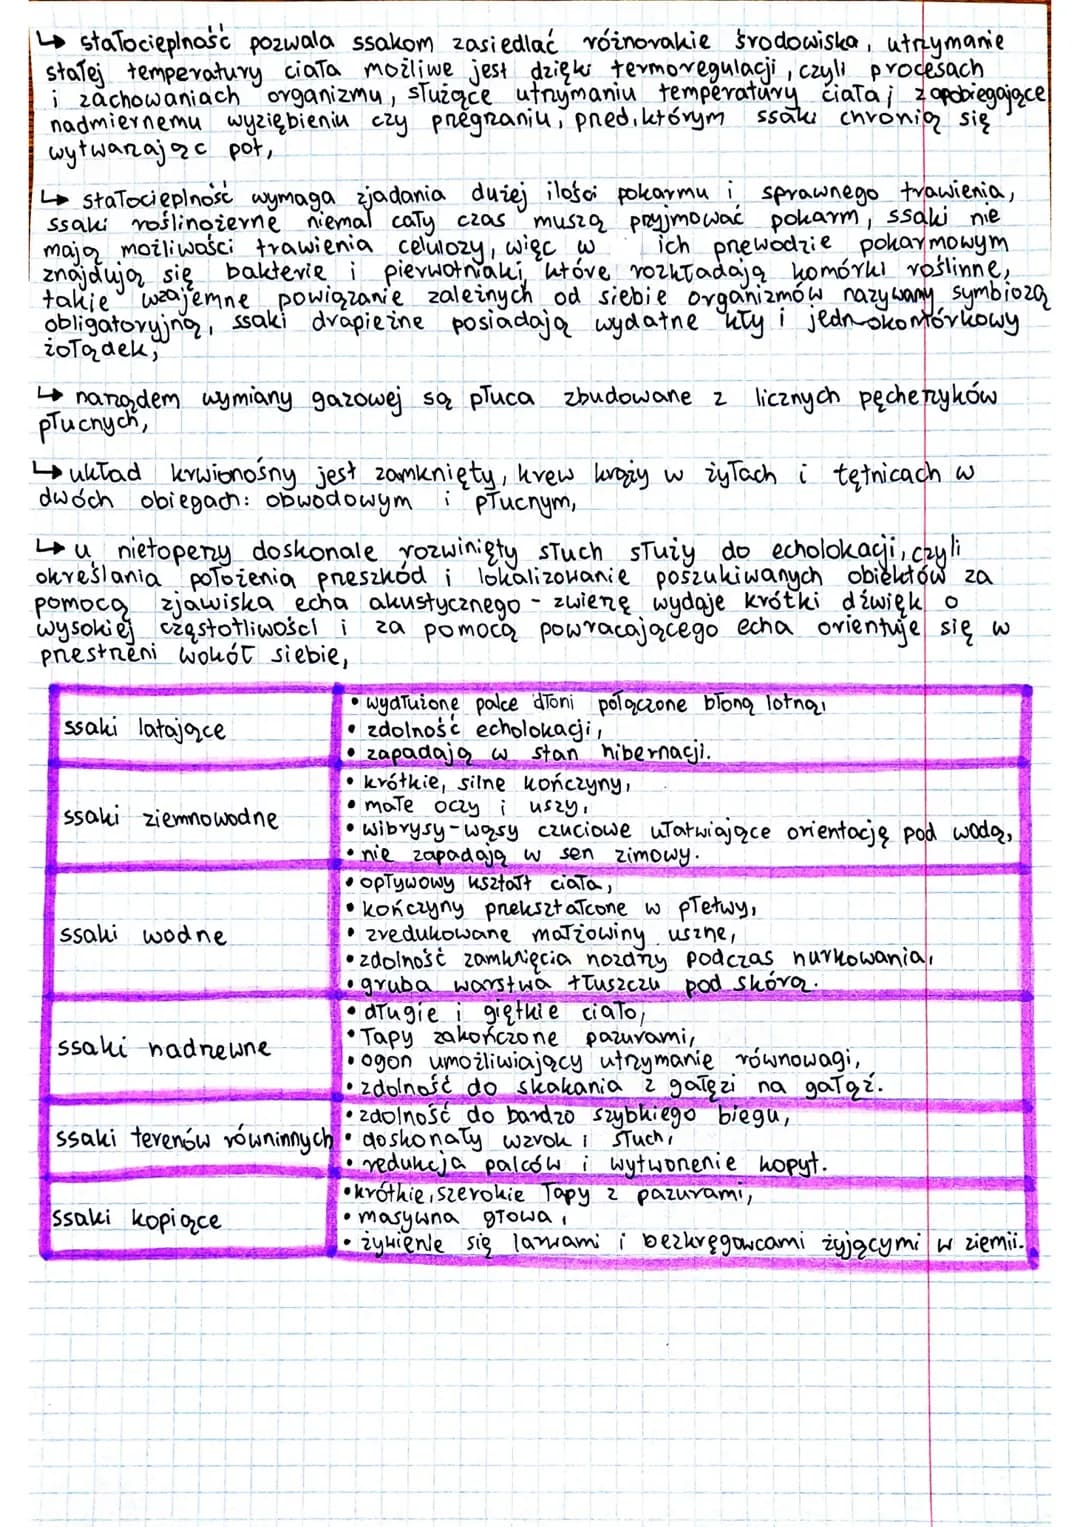 ↳ stałocieplność pozwala ssakom zasiedlać różnorakie środowiska, utrzymanie
stałej temperatury ciała możliwe jest dzięki termoregulacji, czyli procesach
i zachowaniach organizmu, służące utrzymaniu temperatury ciała i zapobiegające
nadmiernemu wyziębieniu czy przegrzaniu, przed którym ssaki chronią się
wytwarzając pot,
↳ stałocieplność wymaga zjadania dużej ilości pokarmu i sprawnego trawienia,
ssaki roślinożerne niemal cały czas muszą przyjmować pokarm, ssaki nie
mają możliwości trawienia celulozy, więc w ich przewodzie pokarmowym
znajdują się bakterie i pierwotniaki, które rozkładają komórki roślinne,
takie wzajemne powiązanie zależnych od siebie organizmów nazywamy symbiozą
obligatoryjną, ssaki drapieżne posiadają wydatne kły i jednokomórkowy
żołądek,
↳ narządem wymiany gazowej są płuca zbudowane z licznych pęcherzyków
płucnych,
↳ układ krwionośny jest zamknięty, krew krąży w żyłach i tętnicach w
dwóch obiegach: obwodowym i płucnym,
↳ u nietoperzy doskonale rozwinięty słuch służy do echolokacji, czyli
określania położenia przeszkód i lokalizowanie poszukiwanych obiektów za
pomocą zjawiska echa akustycznego - zwierzę wydaje krótki dźwięk o
wysokiej częstotliwości i za pomocą powracającego echa orientuje się w
przestrzeni wokół siebie,
ssaki latające
• wydłużone palce dłoni połączone błoną lotną,
• zdolność echolokacji,
• zapadają w stan hibernacji.
ssaki ziemnowodne
• krótkie, silne kończyny,
• małe oczy i uszy,
• wibrysy-wąsy czuciowe ułatwiające orientację pod wodą,
• nie zapadają w sen zimowy.
ssaki wodne
• opływowy kształt ciała,
• kończyny przekształcone w płetwy,
• zredukowane małżowiny uszne,
• zdolność zamknięcia nozdrzy podczas nurkowania,
• gruba warstwa tłuszczu pod skórą.
ssaki nadrzewne
• długie i giętkie ciało,
• łapy zakończone pazurami,
• ogon umożliwiający utrzymanie równowagi,
• zdolność do skakania z gałęzi na gałąź.
ssaki terenów równinnych
• zdolność do bardzo szybkiego biegu,
• doskonały wzrok i słuch,
• redukcja palców i wytworzenie kopyt.
ssaki kopiące
• krótkie, szerokie łapy z pazurami,
• masywna głowa,
• żywienie się larwami i bezkręgowcami żyjącymi w ziemii.